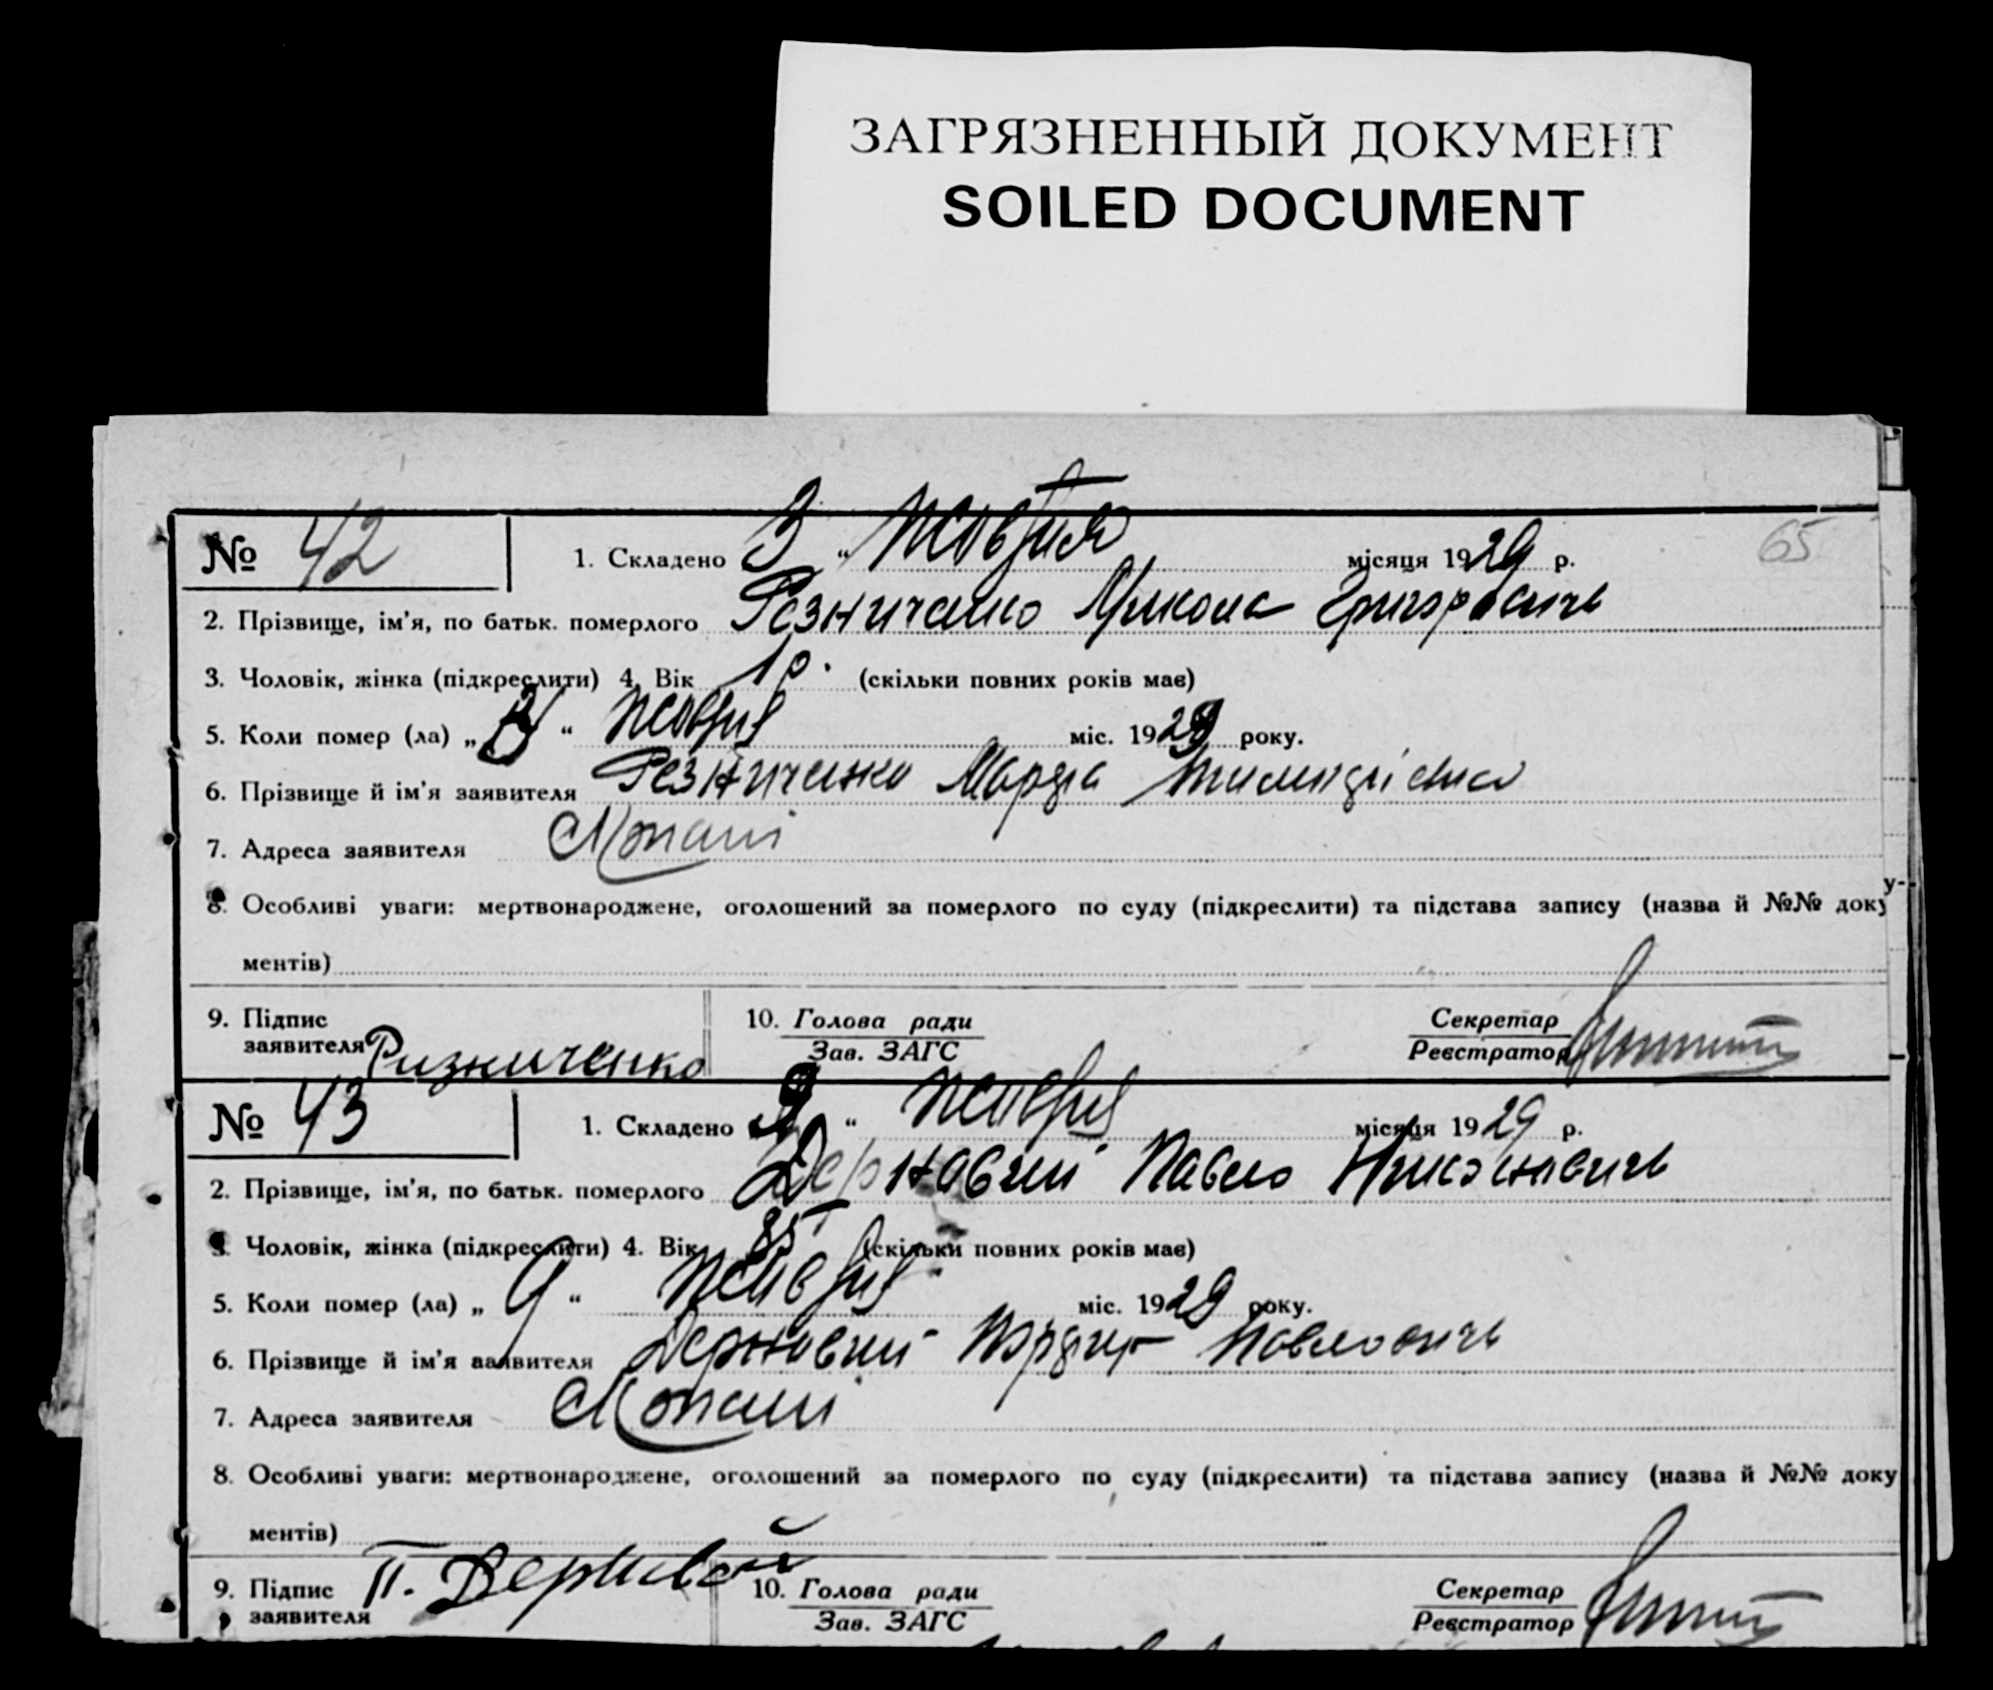 ЗАГРЯЗНЕННЫЙ ДОКУМЕНТ
SOILED DOCUMENT
65
№ 42 1. Складено 3 “ Жовтня місяця 1929 р.
2. Прізвище, ім'я, по батьк. померлого Резниченко Микола Григорович
3. Чоловік, жінка (підкреслити) 4. Вік 1 р. (скільки повних років має)
5. Коли помер (ла) „ “ Жовтня міс. 1929 року.
6. Прізвище й ім'я заявителя Резниченко Марфа
7. Адреса заявителя
8. Особливі уваги: мертвонароджене, оголошений за померлого по суду (підкреслити) та підстава запису (назва й №№ доку
ментів)
9. Підпис заявителя Ризниченко 10. Голова ради Зав. ЗАГС Секретар Реєстратор
№ 43 1. Складено 9 “ Жовтня місяця 1929 р.
2. Прізвище, ім'я, по батьк. померлого Павло
3. Чоловік, жінка (підкреслити) 4. Вік 85 (скільки повних років має)
5. Коли помер (ла) „ 9 “ Жовтня міс. 1929 року.
6. Прізвище й ім'я заявителя Павлович
7. Адреса заявителя
8. Особливі уваги: мертвонароджене, оголошений за померлого по суду (підкреслити) та підстава запису (назва й №№ доку
ментів)
9. Підпис заявителя П. 10. Голова ради Зав. ЗАГС Секретар Реєстратор